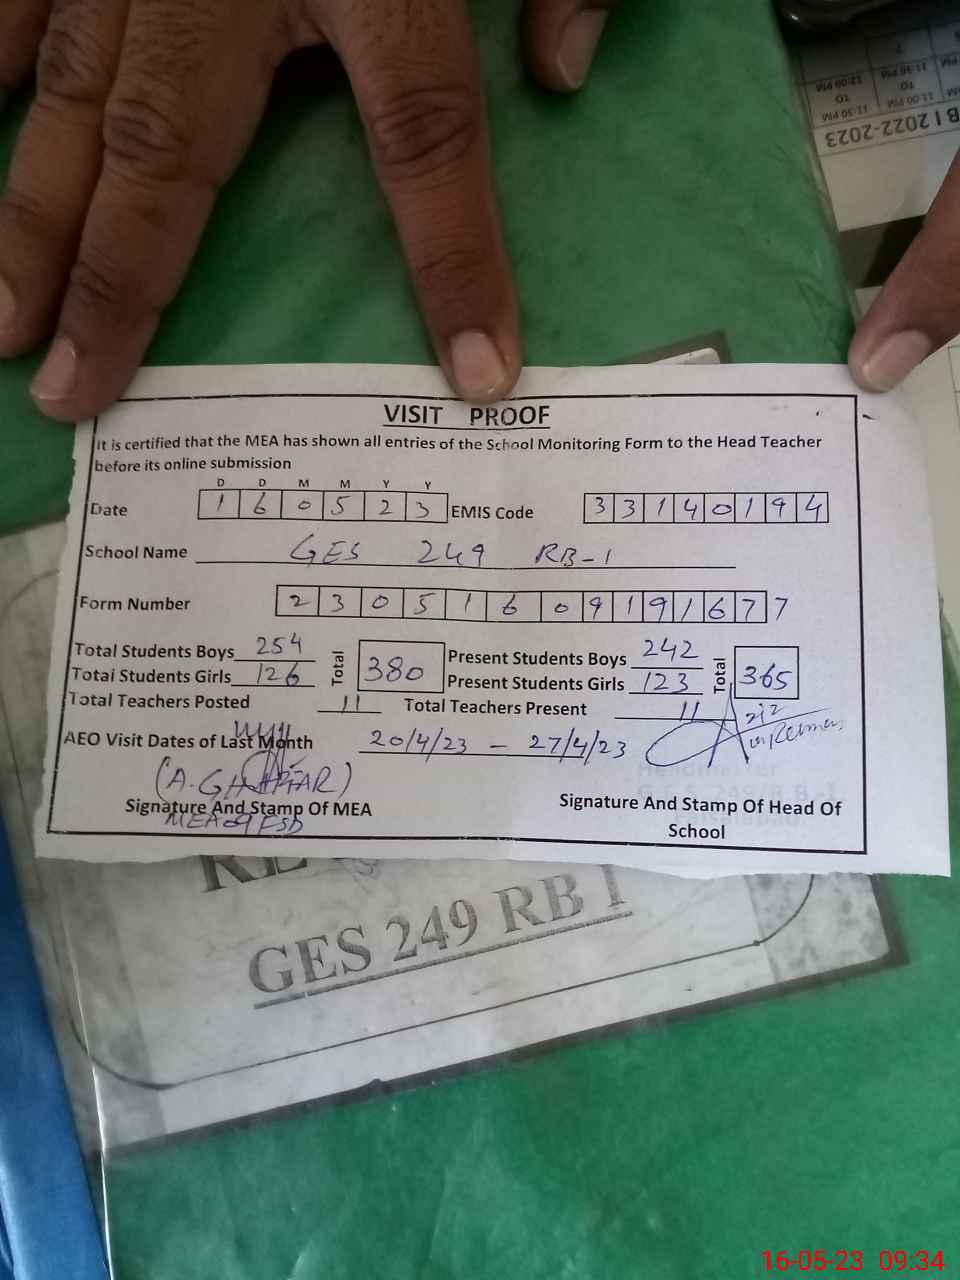 12:00 PM
TO
11:30 PM
11:30 PM
TO
11:00 PM
B I 2022-2023
VISIT PROOF
It is certified that the MEA has shown all entries of the School Monitoring Form to the Head Teacher
before its online submission
D D M M Y Y
Date 1 6 0 5 2 3 EMIS Code 3 3 1 4 0 1 9 4
School Name GES 249 RB-1
Form Number 2 3 0 5 1 6 0 9 1 9 1 6 7 7 7
Total Students Boys 254 Total 380 Present Students Boys 242 Total 365
Total Students Girls 126 Present Students Girls 123
Total Teachers Posted 11 Total Teachers Present 11
AEO Visit Dates of Last Month 20/4/23 - 27/4/23
(A. GHAFFAR)
Signature And Stamp Of MEA
MEA 09 FSD
Signature And Stamp Of Head Of
School
GES 249 RB I
16-05-23 09:34